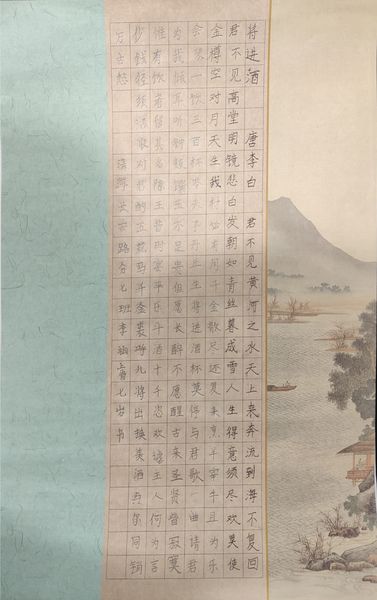 将进酒 唐李白 君不见黄河之水天上来奔流到海不复回
君不见高堂明镜悲白发朝如青丝暮成雪人生得意须尽欢莫使
金樽空对月天生我材必有用千金散尽还复来烹羊宰牛且为乐
会须一饮三百杯岑夫子丹丘生将进酒杯莫停与君歌一曲请君
为我倾耳听钟鼓馔玉不足贵但愿长醉不愿醒古来圣贤皆寂寞
惟有饮者留其名陈王昔时宴平乐斗酒十千恣欢谑主人何为言
少钱径须沽取对君酌五花马千金裘呼儿将出换美酒与尔同销
万古愁 路 七班李 七岁书